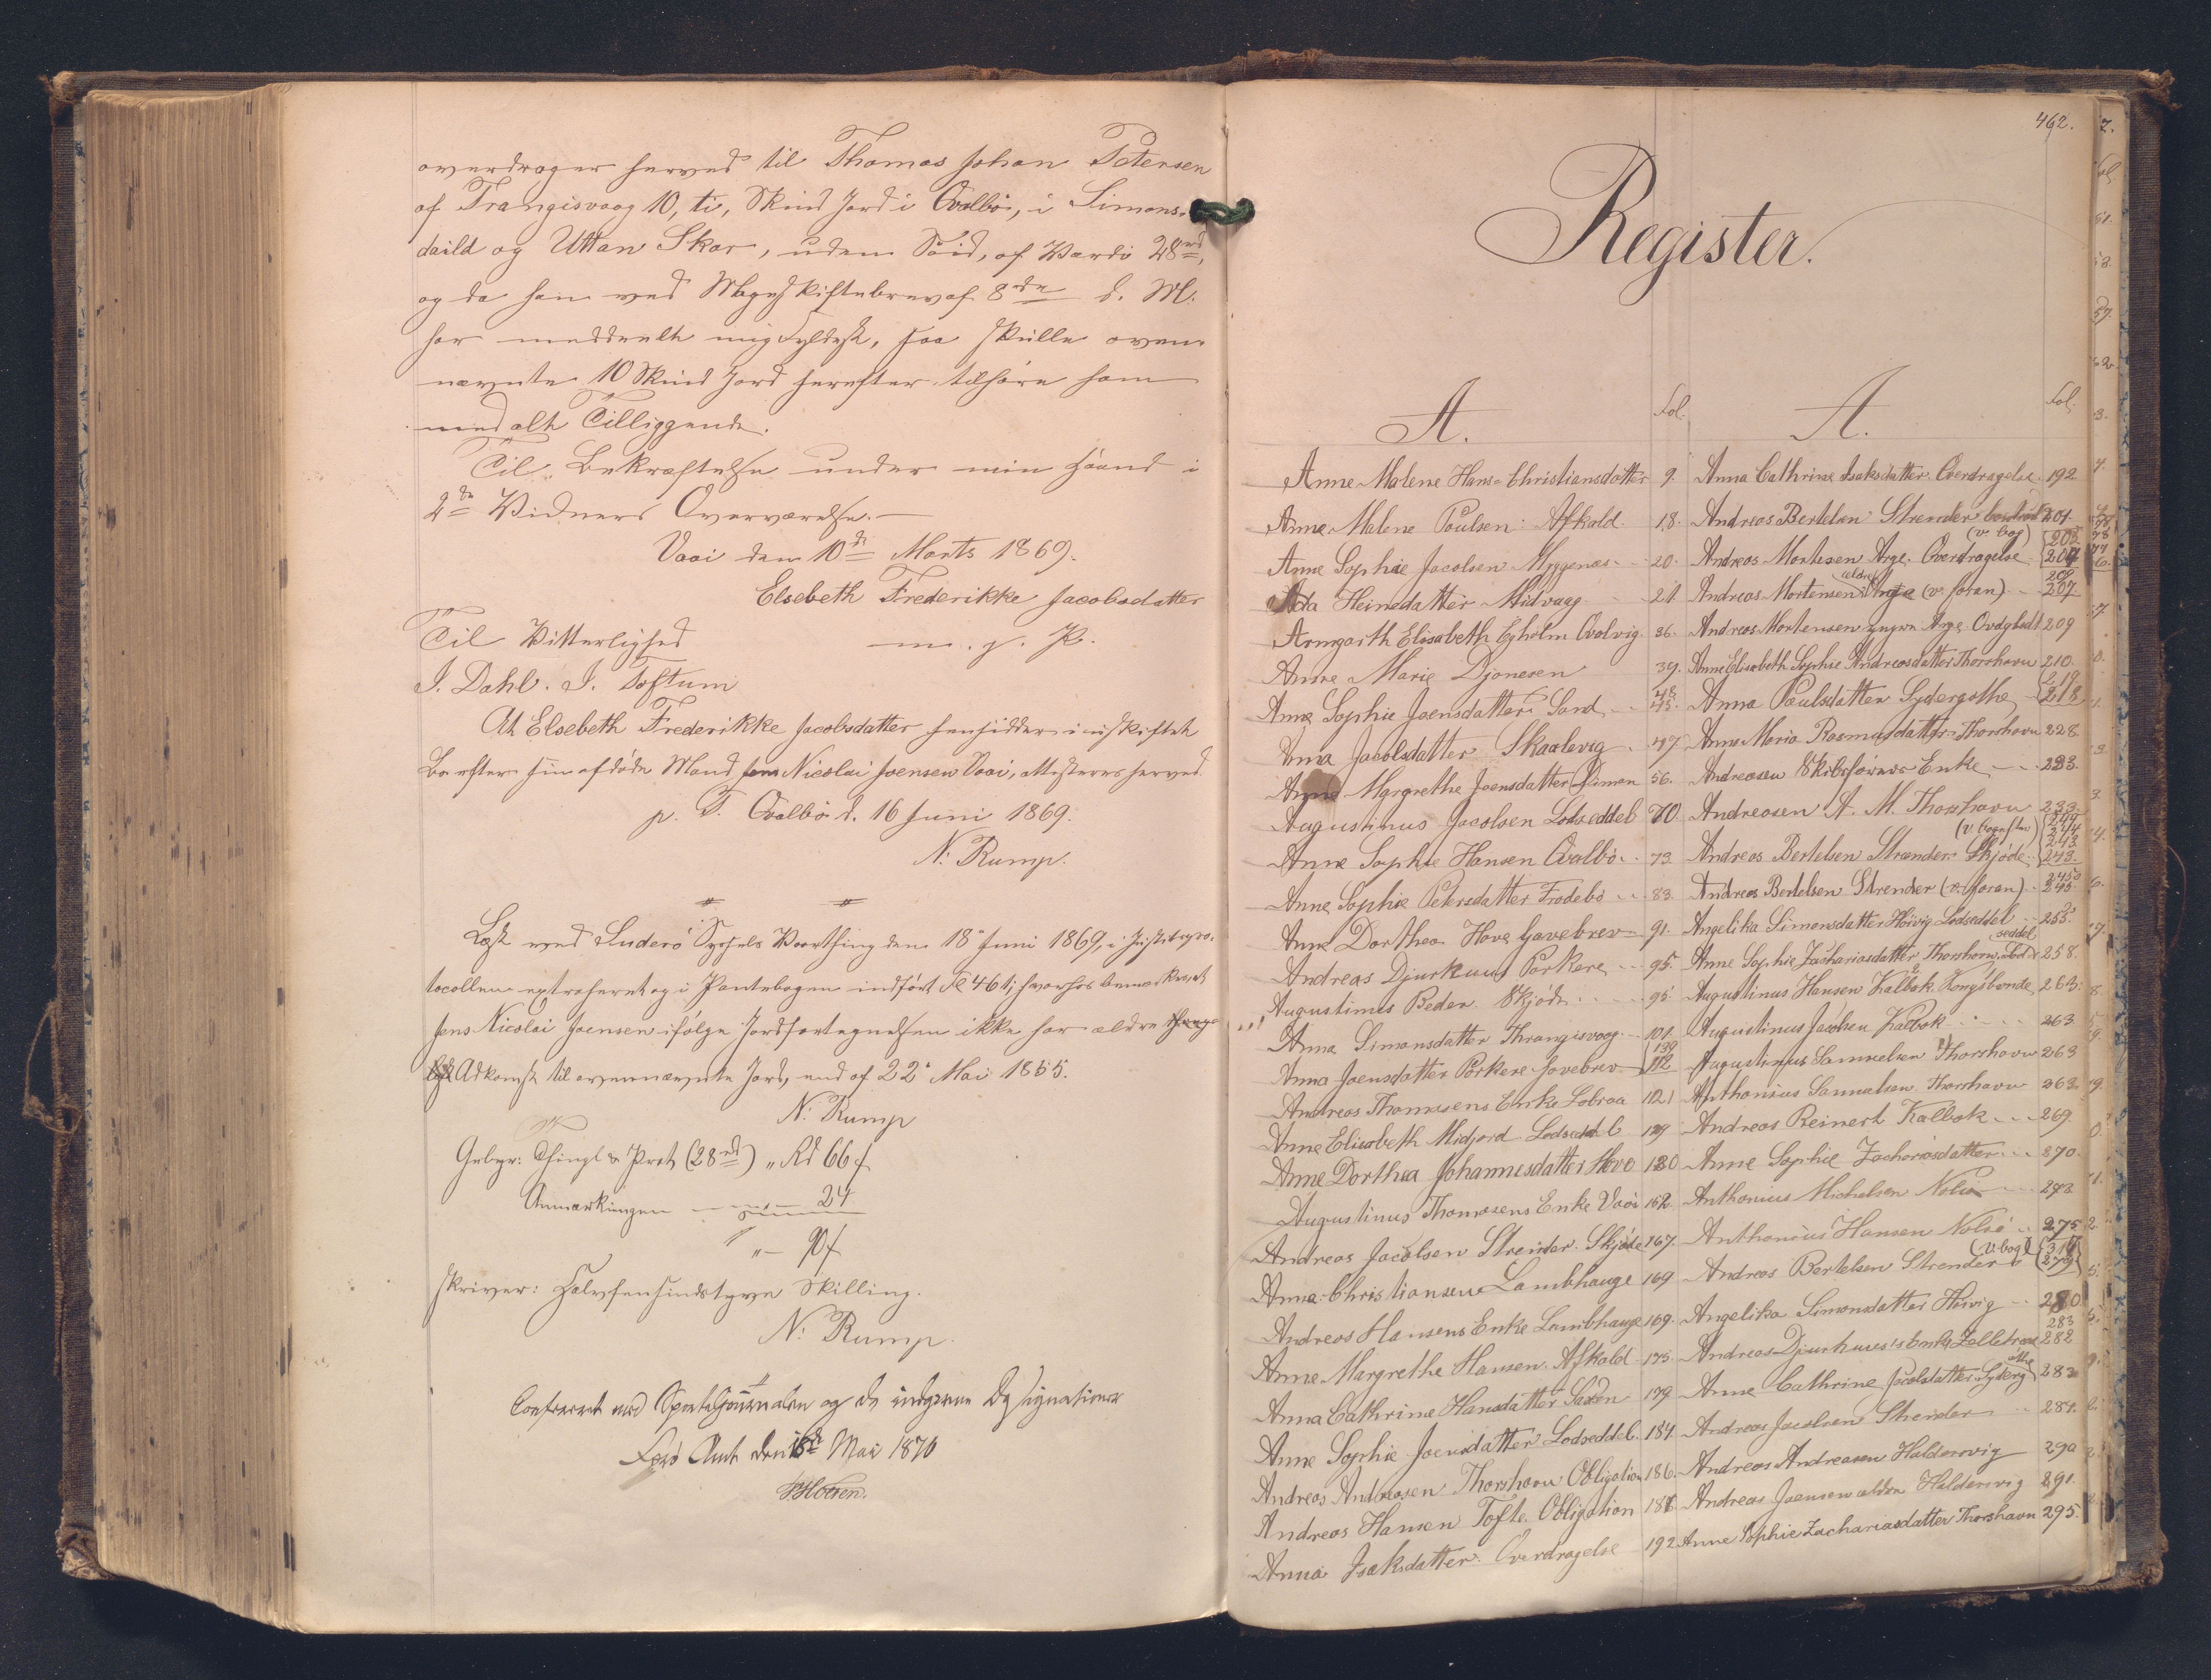 overdrager herved til Thomas Johan Petersen
af Trangisvaag 10, ti, Skind Jord i Qvalbø, i Simons-
daild og Uttan Skar, uden Söid, af Værdi 28 rd,
og da han ved Mageskiftebrev af 8de d. M.
har meddeelt mig Fyldest, saa skulle oven-
nævnte 10 Skind Jord herefter tilhøre ham
med alt Tilliggende.
Til Bekræftelse under min Haand i
2de Vidners Overværelse. —
Vaai den 10de Marts 1869.
Elsebeth Frederikke Jacobsdatter
Til Vitterlighed m. f. P.
J. Dahl. J. Toftum
At Elsebeth Frederikke Jacobsdatter hensidder i uskiftet
Bo efter sin afdøde Mand Jens Nicolai Joensen Vaai, attesteres herved.
p. T. Qvalbø d. 16 Juni 1869.
N: Rump.
Læst ved Suderø Syssels Vaarthing den 18de Juni 1869, i Justitspro-
tocollen extraheret og i Pantebogen indført Fol 461; hvorhos bemærkes at
Jens Nicolai Joensen ifølge Jordfortegnelsen ikke har ældre
Adkomst til ovennævnte Jord, end af 22de Mai 1855.
N: Rump
Gebyr: Thingl & Prot (28 rd) „ Rd 66 ß
Anmærkningen — 24
„ — 90 ß
skriver: Halvfemsindstyve Skilling.
N: Rump.
Confereret med Sporteljournalen og de indgivne Designationer
Færø Amt den 18de Mai 1870
HHolten.
462.
Register.
A. Fol. A. Fol.
Anne Malene Hans-Christiansdatter 9. Anna Cathrine Isaksdatter. Overdragelse. 192
Anne Malene Poulsen: Afkald. 18. Andreas Bertelsen Strender 201.
Anne Sophie Jacobsen Myggenæs 20. Andreas Mortensen Arge. Overdragelse (v. bag) 205 204
Ada Heinesdatter Midvaag 21 Andreas Mortensen ældre Arge (v. foran) 208 207.
Armgarth Elisabeth Egholm Qvalvig. 36. Andreas Mortensen yngre Arge 209
Anne Marie Djonesen 39. Anne Elisabeth Sophie Andreasdatter Thorshavn 210.
Anne Sophie Joensdatter Sand 48 45. Anna Poulsdatter Sydergothe 219 218
Anna Jacobsdatter Skaalevig 47 Anne Maria Rasmusdatter Thorshavn 228
Anne Margrethe Joensdatter Dimon 56. Andreasen Skibsførers Enke 233.
Augustinus Jacobsen Lodseddel 70 Andreasen A. M. Thorshavn 233
Anne Sophie Hansen Qvalbø 73 Andreas Bertelsen Strender Skjøde 244 243 243.
Anne Sophie Petersdatter Frodebø 83. Andreas Bertelsen Strender (v. foran) 245
Anne Dorthea Hove Gavebrev 91. Angelika Simonsdatter Höivig Lodseddel 255.
Andreas Djurhuus Porkere 95. Anne Sophie Zachariasdatter Thorshavn, Lodseddel 258.
Augustinus Peder. Skjøde 95 Augustinus Hansen Kalbak Kongsbonde 263.
Anna Simonsdatter Thrangisvaag 101. Augustinus Jacobsen Kalbak 263
Anna Joensdatter Porkere Gavebrev 139 112 Augustinus Samuelsen Thorshavn 263
Andreas Thomasens Enke Lobraa 121 Anthonius Samuelsen Thorshavn 263
Anne Elisabeth Midjord Lodseddel 129 Andreas Reinert Kalbak 269.
Anne Dorthea Johannesdatter Hove 130 Anne Sophie Zachariasdatter 270.
Augustinus Thomasens Enke Vaai 162. Anthonius Michelsen Nolsø 273.
Andreas Jacobsen Strender. Skjøde 167. Anthonius Hansen Nolsø 275
Anna Christiansen Lambhauge 169 Andreas Bertelsen Strender (v. bag) 279
Andreas Hansens Enke Lambhauge 169. Angelika Simonsdatter Höivig 280
Anne Margrethe Hansen Afkald 175. Andreas Djurhuus's Enke Zelletræe 283 282
Anna Cathrine Hansdatter Saxen 179 Anne Cathrine Jacobsdatter Sydergøthe 283
Anne Sophie Joensdatter Lodseddel. 184 Andreas Jacobsen Strender 284.
Andreas Andreasen Thorshavn Obligation 186. Andreas Andreasen Haldersvig 290
Andreas Hansen Tofte. Obligation 188. Andreas Joensen ældre Haldersvig 291.
Anna Isaksdatter. Overdragelse 192 Anne Sophie Zachariasdatter Thorshavn 295.